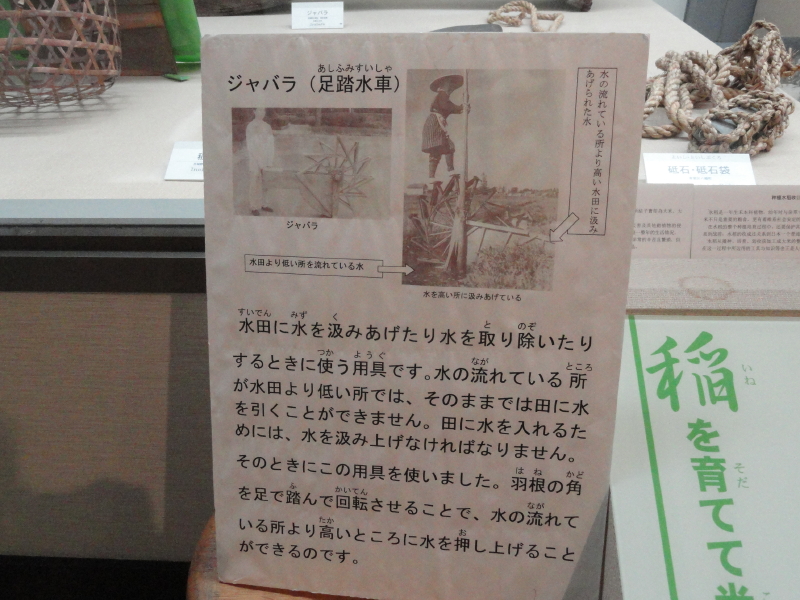 ジャバラ
ジャバラ（足踏水車）
あしふみすいしゃ
水の流れている所より高い水田に汲み
あげられた水
ジャバラ
水田より低い所を流れている水
水を高い所に汲みあげている
水田に水を汲みあげたり水を取り除いたり
すいでん みず く と のぞ
するときに使う用具です。水の流れている所
つか ようぐ なが ところ
が水田より低い所では、そのままでは田に水
を引くことができません。田に水を入れるた
めには、水を汲み上げなければなりません。
そのときにこの用具を使いました。羽根の角
はね かど
を足で踏んで回転させることで、水の流れて
ふ かいてん なが
いる所より高いところに水を押し上げること
たか お
ができるのです。
砥石・砥石袋
稲を育てて
いね そだ